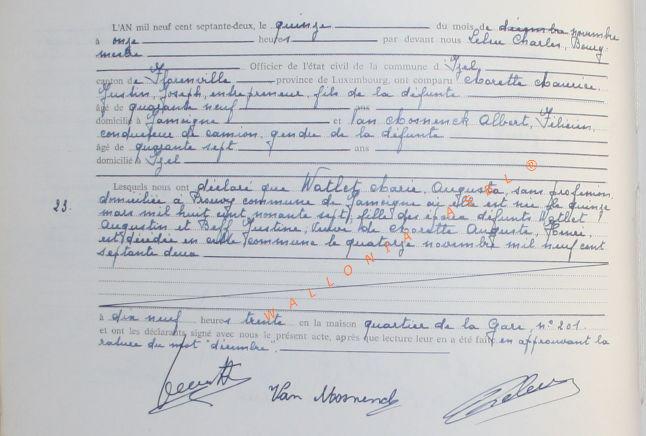 L'AN mil neuf cent septante-deux, le quinze du mois de décembre novembre
à onze heures par devant nous Leleu Charles, Bourg-
mestre
Officier de l'état civil de la commune d'Izel,
canton de Florenville province de Luxembourg, ont comparu Marette Maurice,
Justin, Joseph, entrepreneur, fils de la défunte
âgé de quarante neuf ans
domicilié à Jamoigne et Van Mosnenck Albert, Félicien,
conducteur de camion, gendre de la défunte
âgé de quarante sept ans
domicilié à Izel
Lesquels nous ont déclaré que Watlet Marie, Augusta, sans profession,
23. domiciliée à Prouvy commune de Jamoigne où elle est née le quinze
mars mil huit cent nonante sept, fille des époux défunts Watlet
Augustin et Justine, veuve de Marette Auguste, Henri,
est décédée en cette commune le quatorze novembre mil neuf cent
septante deux
à dix neuf heures trente en la maison quartier de la Gare, n° 201.
et ont les déclarants signé avec nous le présent acte, après que lecture leur en a été faite en approuvant la
rature du mot "décembre".
Van Mosnenck
WALLONIA ABEL ®